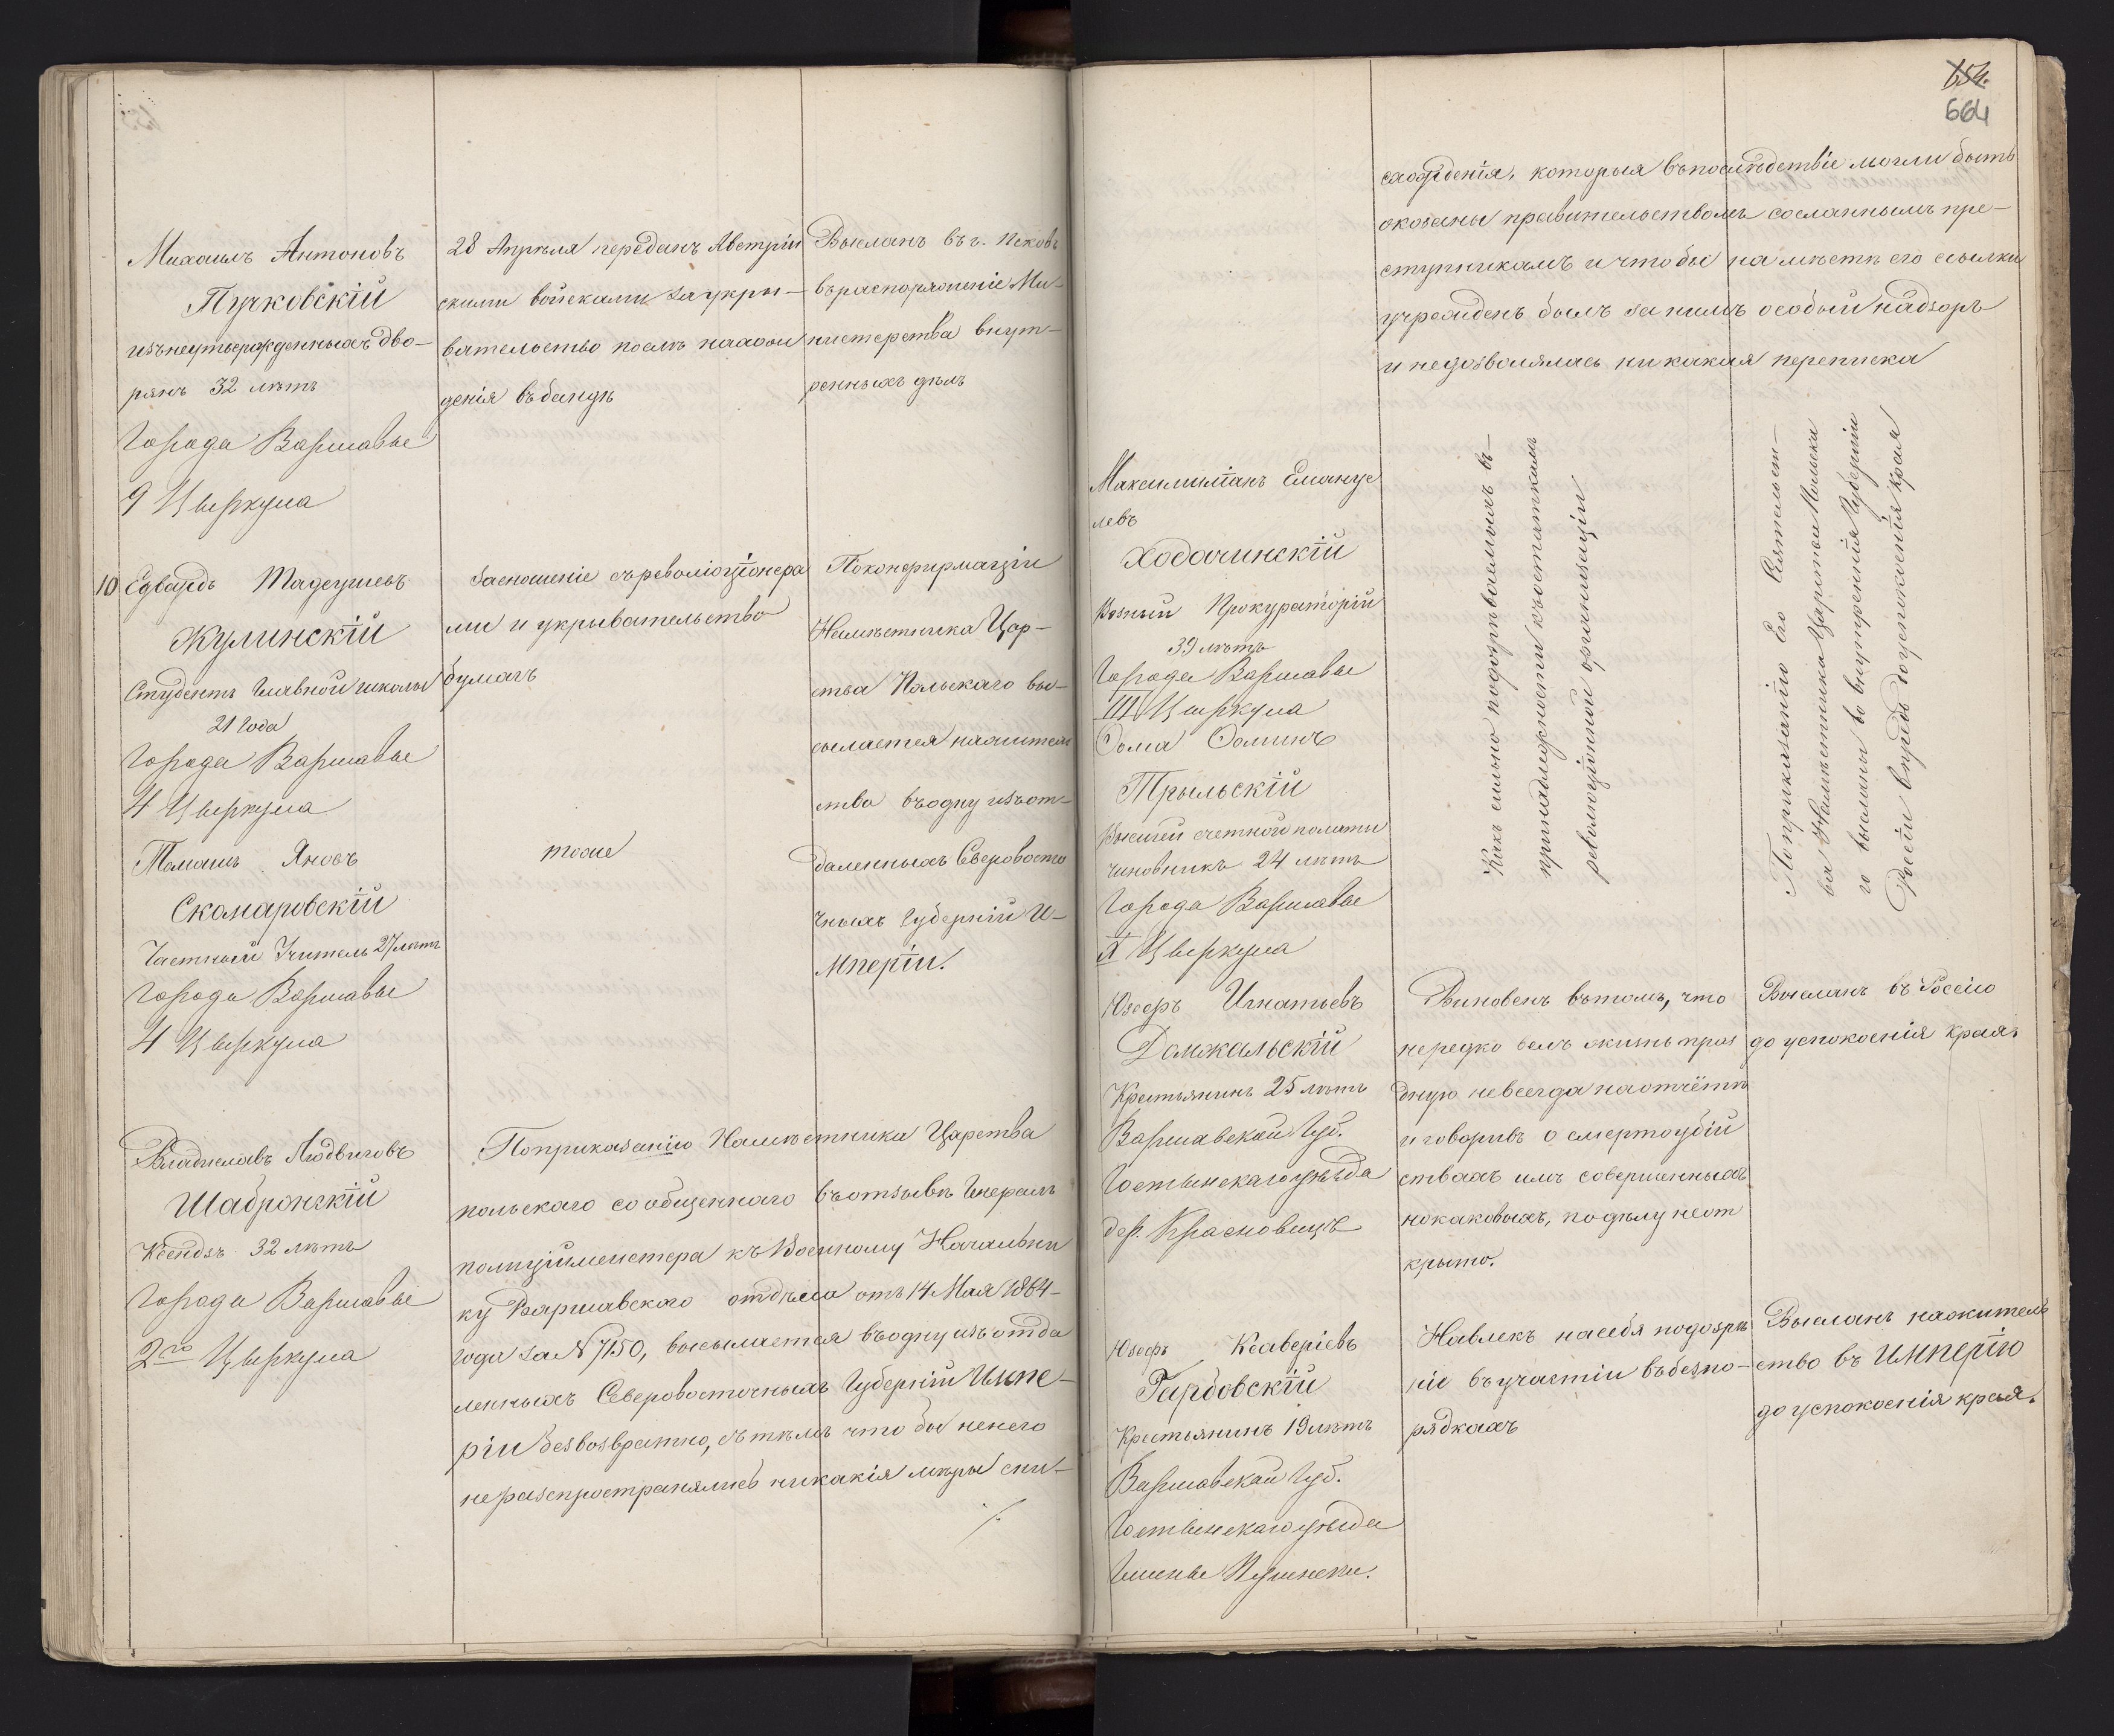 Михаилъ Антоновъ
Пучковскій
изъ неутвержденныхъ дво-
рянъ 32 лѣтъ
Города Варшавы
9 Циркула
28 Апрѣля переданъ Австрій
скими войсками за укры-
вательство послѣ нахож
денія въ бандѣ
Высланъ въ г. Псковъ
въ распоряженіе Ми-
нистерства внут-
реннихъ дѣлъ
10 Едвардъ Тадеушевъ
Жулинскій
Студентъ Главной школы
21 Года
Города Варшавы
4 Циркула
За сношеніе съ революціонера
ми и укрывательство
бумагъ
По конфирмаціи
Намѣстника Цар-
ства Польскаго вы-
сылается на житель
ство въ одну изъ от-
даленныхъ Сѣверовосто
чныхъ Губерній И-
мперіи.
Томашъ Яновъ
Скомаровскій
Частный Учитель 27 лѣтъ
Города Варшавы
4 Циркула
тоже
Владиславъ Людвиговъ
Шабронскій
Ксендзъ 32 лѣтъ
Города Варшавы
2го Циркула
По приказанію Намѣстника Царства
польскаго сообщеннаго въ отзывѣ Генералъ
полиціймейстера къ Военному Начальни
ку Варшавскаго отдѣла отъ 14 Мая 1864-
года за № 7150, высылается въ одну изъ отда
ленныхъ Сѣверовосточныхъ Губерній Импе-
ріи безвозвратно, съ тѣмъ что бы на него
не распространялись никакія мѣры сни-
./.
654.
664
схожденія, которыя въ послѣдствіе могли быть
оказаны правительствомъ сосланнымъ пре-
ступникамъ и чтобы на мѣстѣ его ссылки
учрежденъ былъ за нимъ особый надзоръ
и недозволялась никакая переписка
Максимиліанъ Емануе
левъ
Ходочинскій
Возный Прокураторіи
39 лѣтъ
Города Варшавы
III Циркула
Тома Томинъ
Трыльскій
Высшей счетной палаты
чиновникъ 24 лѣтъ
Города Варшавы
X Циркула
Какъ сильно подозрѣваемыхъ въ-
принадлежности къ остаткамъ
революціонной организаціи
По приказанію Его Сіятельст-
ва Намѣстника Царства Польска
го высланы во внутреннія Губерніи
Россіи впредь до успокоенія края
Юзефъ Игнатьевъ
Домжальскій
Крестьянинъ 25 лѣтъ
Варшавской Губ.
Гостынскаго уѣзда
дер. Красновицъ
Виновенъ въ томъ, что
нередко велъ жизнь праз
дную невсегда на отчётѣ
и говоривъ о смертоубій
ствахъ имъ совершенныхъ
но каковыхъ, по дѣлу неот
крыто.
Высланъ въ Россію
до успокоенія края.
Юзефъ Ксаверіевъ
Гардовскій
Крестьянинъ 19 лѣтъ
Варшавской Губ.
Гостынскаго уѣзда
Навлекъ на себя подозрѣ
ніе въ участіи въ безпо-
рядкахъ
Высланъ на житель
ство въ Имперію
до успокоенія края.